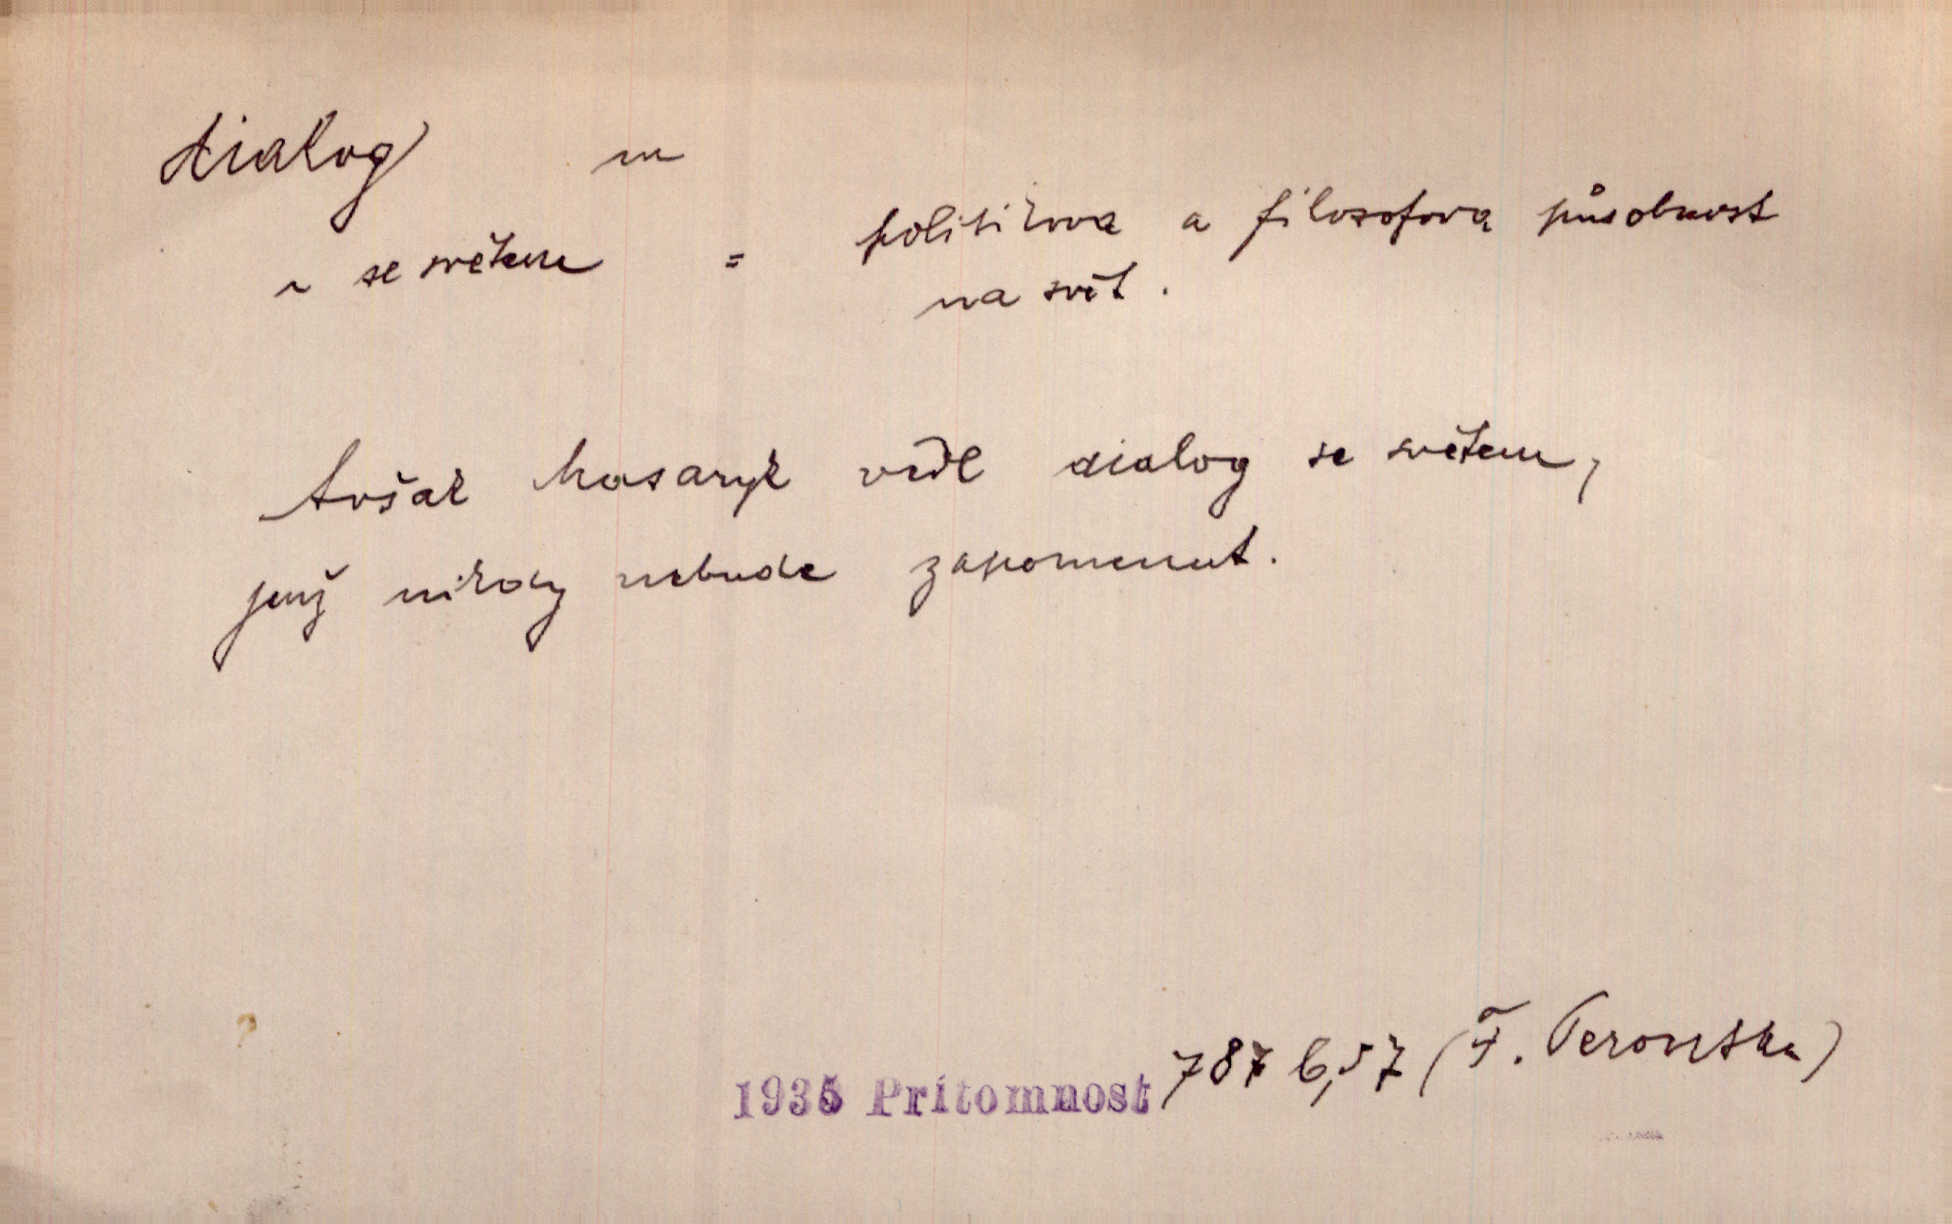 dialog m
~ se světem = politikova a filosofova působnost
na svět.
Avšak Masaryk vedl dialog se světem,
jenž nikdy nebude zapomenut.
1935 Prítomnost 787 b,57 (F. Peroutka)